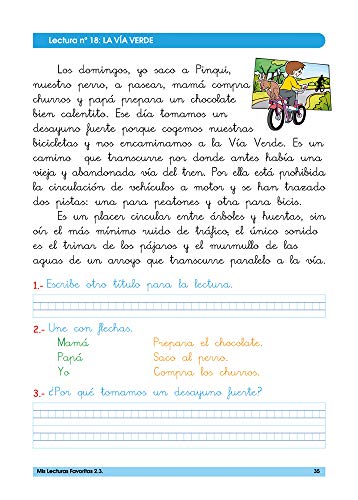 Lectura nº 18: LA VÍA VERDE
Los domingos, yo saco a Pinqui,
nuestro perro, a pasear, mamá compra
churros y papá prepara un chocolate
bien calentito. Ese día tomamos un
desayuno fuerte porque cogemos nuestras
bicicletas y nos encaminamos a la Vía Verde. Es un
camino que transcurre por donde antes había una
vieja y abandonada vía del tren. Por ella está prohibida
la circulación de vehículos a motor y se han trazado
dos pistas: una para peatones y otra para bicis.
Es un placer circular entre árboles y huertas, sin
oír el más mínimo ruido de tráfico, el único sonido
es el trinar de los pájaros y el murmullo de las
aguas de un arroyo que transcurre paralelo a la vía.
1.- Escribe otro título para la lectura.
2.- Une con flechas.
Mamá Prepara el chocolate.
Papá Saco al perro.
Yo Compra los churros.
3.- ¿Por qué tomamos un desayuno fuerte?
Mis Lecturas Favoritas 2.3. 35